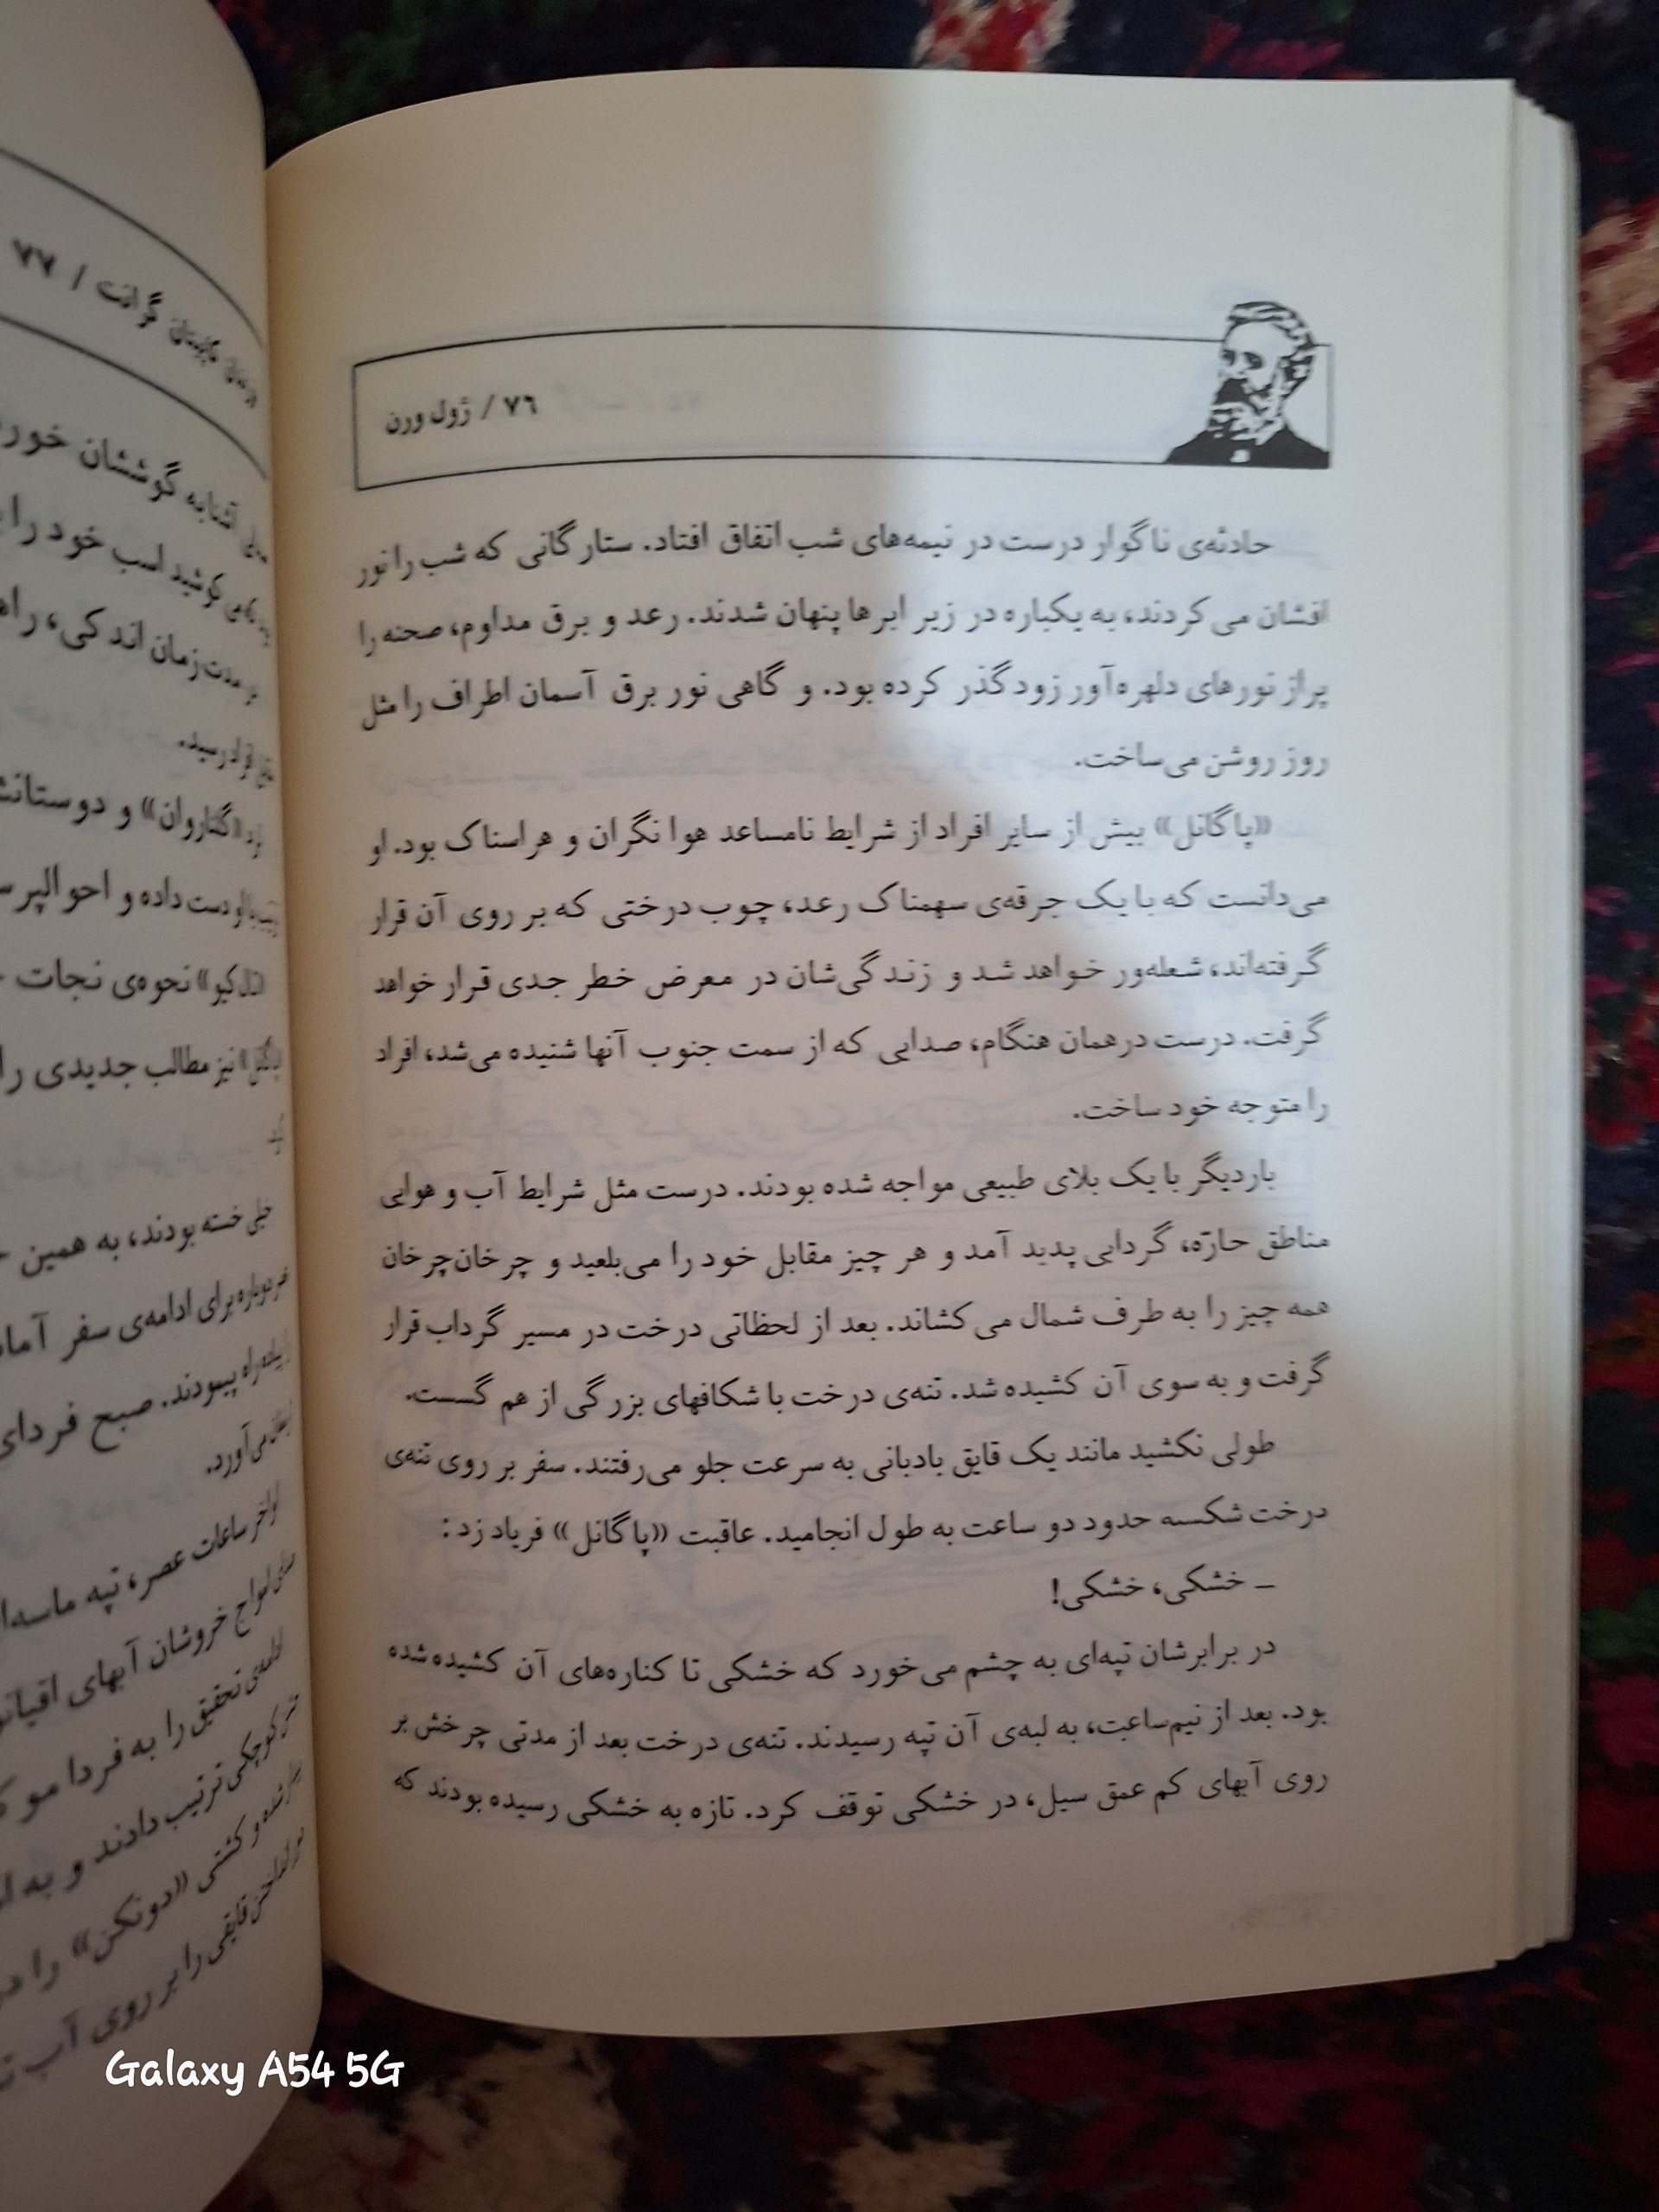 ۷۶ / ژول ورن
حادثه‌ی ناگوار درست در نیمه‌های شب اتفاق افتاد. ستارگانی که شب را نور
افشان می‌کردند، به یکباره در زیر ابرها پنهان شدند. رعد و برق مداوم، صحنه را
پراز نورهای دلهره‌آور زودگذر کرده بود. و گاهی نور برق آسمان اطراف را مثل
روز روشن می‌ساخت.
«پاگانل» بیش از سایر افراد از شرایط نامساعد هوا نگران و هراسناک بود. او
می‌دانست که با یک جرقه‌ی سهمناک رعد، چوب درختی که بر روی آن قرار
گرفته‌اند، شعله‌ور خواهد شد و زندگی‌شان در معرض خطر جدی قرار خواهد
گرفت. درست درهمان هنگام، صدایی که از سمت جنوب آنها شنیده می‌شد، افراد
را متوجه خود ساخت.
باردیگر با یک بلای طبیعی مواجه شده بودند. درست مثل شرایط آب و هوایی
مناطق حارّه، گردابی پدید آمد و هر چیز مقابل خود را می‌بلعید و چرخان‌چرخان
همه چیز را به طرف شمال می‌کشاند. بعد از لحظاتی درخت در مسیر گرداب قرار
گرفت و به سوی آن کشیده شد. تنه‌ی درخت با شکافهای بزرگی از هم گسست.
طولی نکشید مانند یک قایق بادبانی به سرعت جلو می‌رفتند. سفر بر روی تنه‌ی
درخت شکسه حدود دو ساعت به طول انجامید. عاقبت «پاگانل» فریاد زد:
ـ خشکی، خشکی!
در برابرشان تپه‌ای به چشم می‌خورد که خشکی تا کناره‌های آن کشیده شده
بود. بعد از نیم‌ساعت، به لبه‌ی آن تپه رسیدند. تنه‌ی درخت بعد از مدتی چرخش بر
روی آبهای کم عمق سیل، در خشکی توقف کرد. تازه به خشکی رسیده بودند که
کاپیتان گرانت / ۷۷
آشنابه گوششان
کوشید اسب خود را
مدت زمان اندکی،
فرا رسید.
و دوستانش
دست داده و
نحوه‌ی نجات
نیز مطالب جدیدی را
خسته بودند، به همین
دوباره برای ادامه‌ی سفر
راه پیمودند. صبح فردای
می‌آورد.
اواخر ساعات عصر، تپه
امواج خروشان آبهای
تحقیق را به فردا
کوچکی ترتیب دادند و به
و کشتی «دونکن» را
قایقی را بر روی آب
Galaxy A54 5G